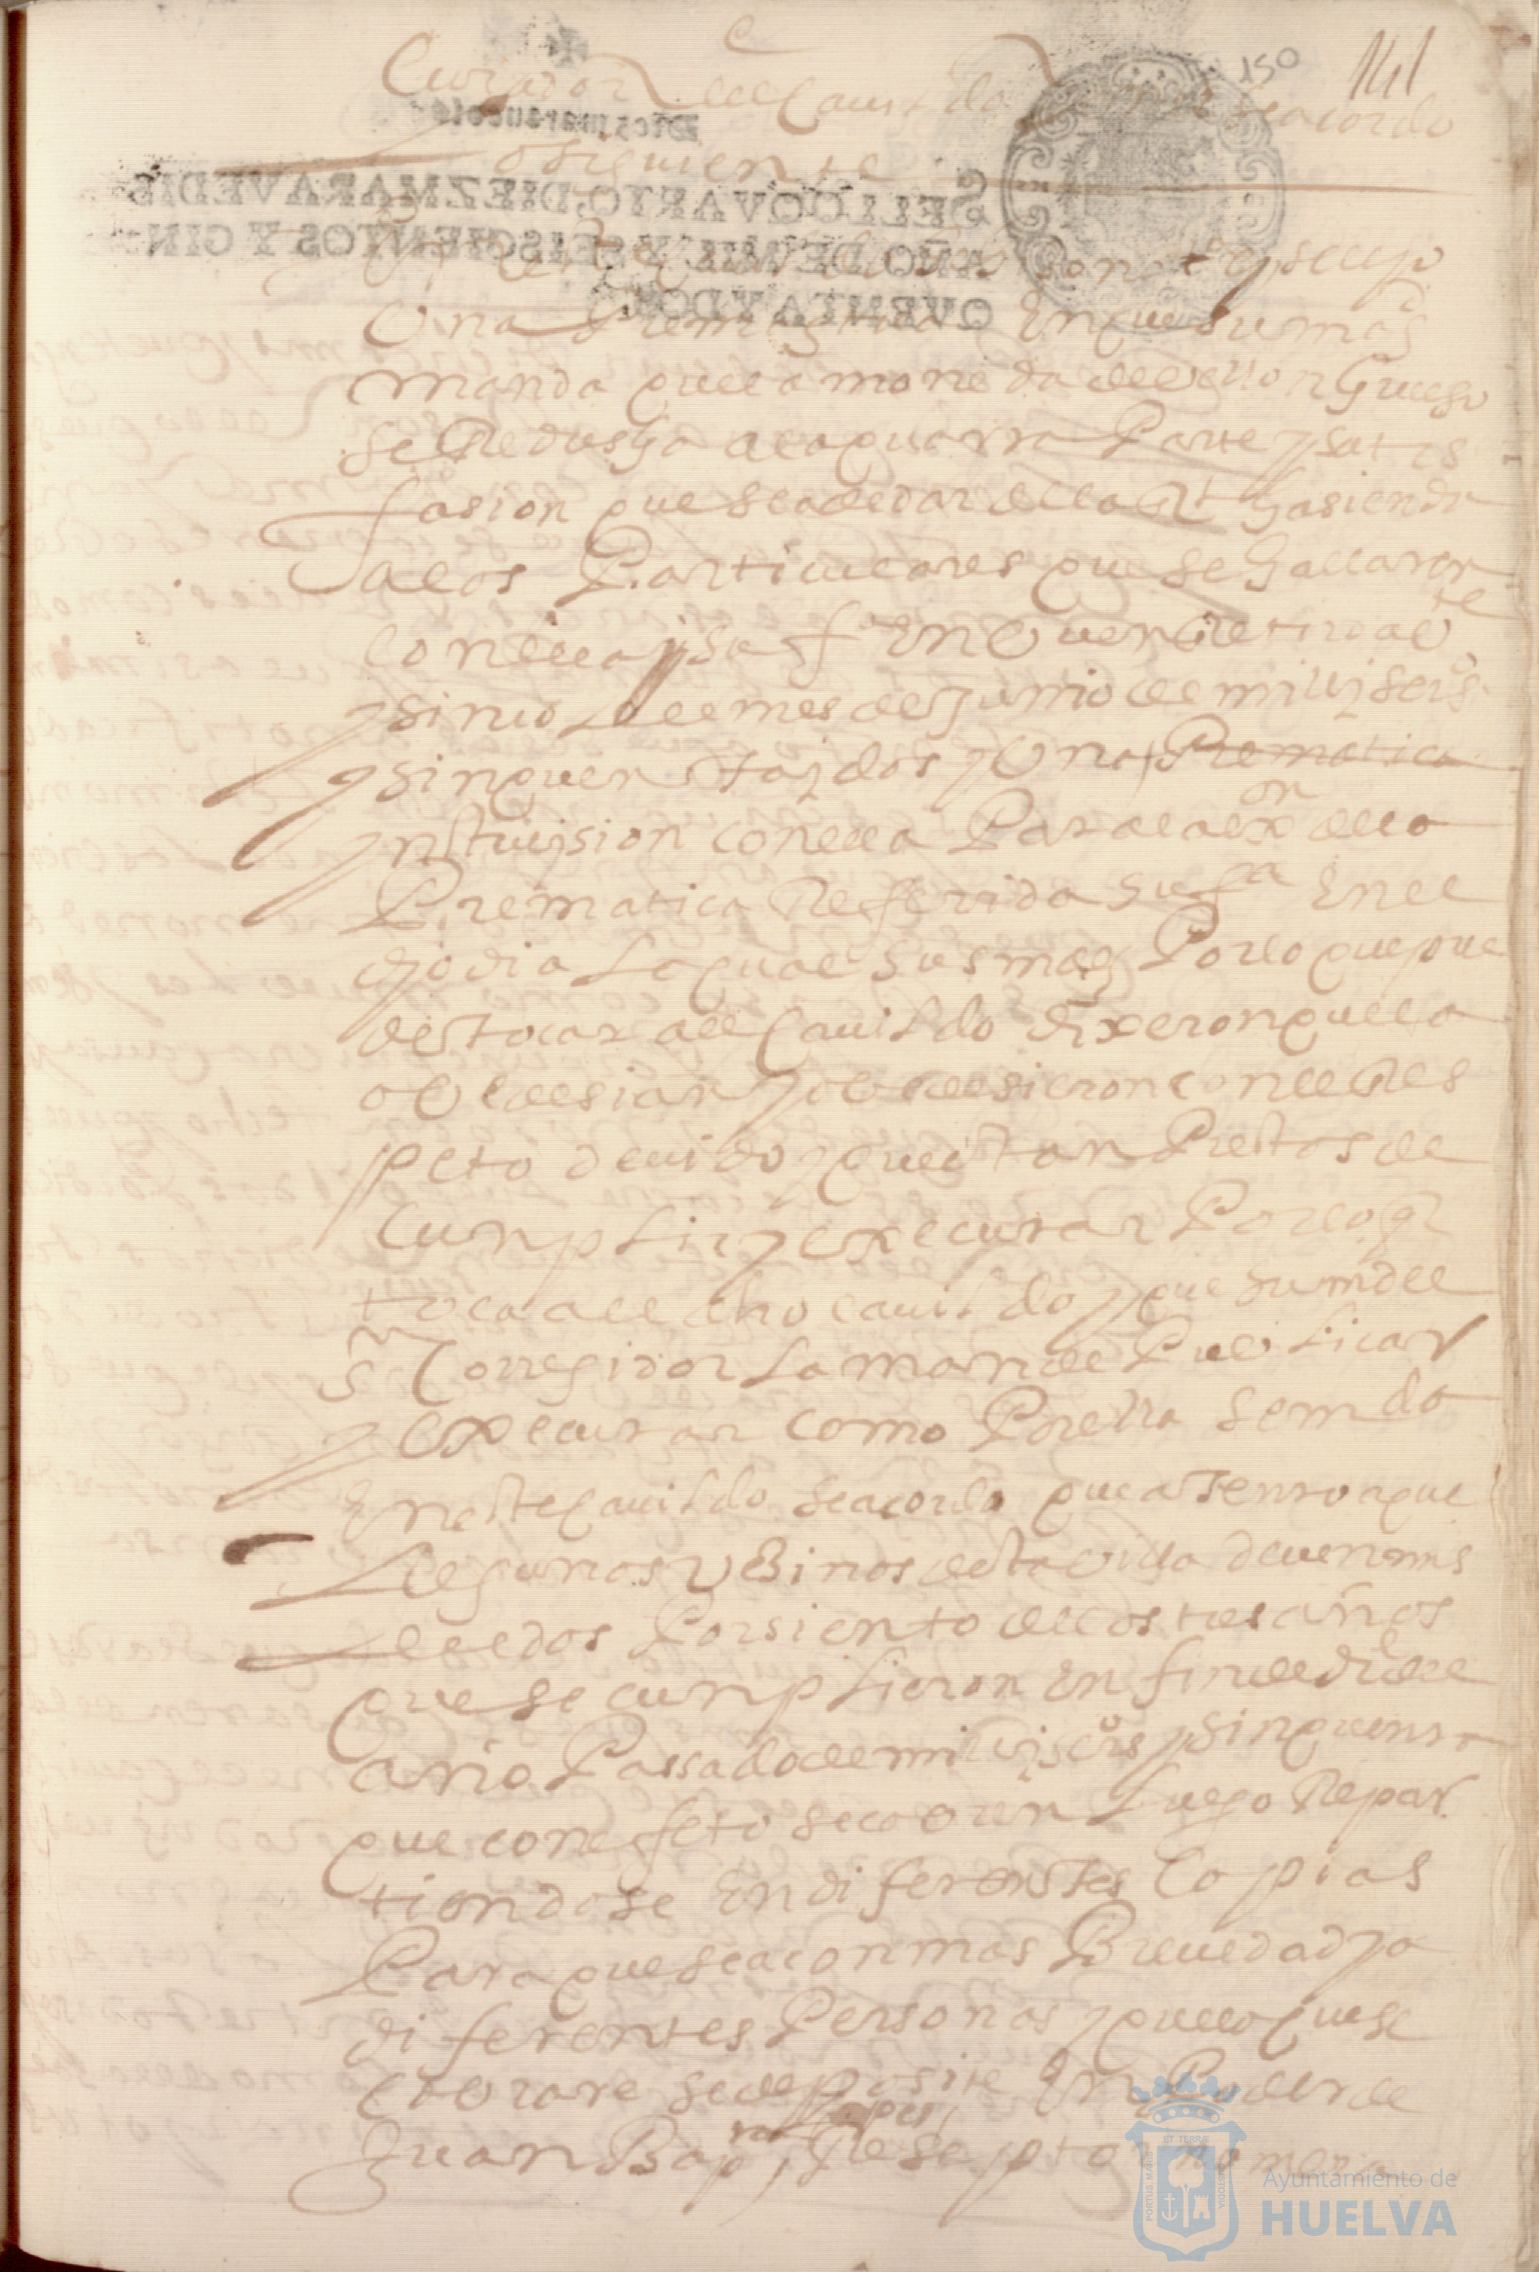 150
141
Curador del Cauildo se acordo
lo siguiente
Diez maravedis
SELLO QVARTO, DIEZ MARAVEDIS
AÑO DE MIL Y SEISCIENTOS Y CIN
QVENTA Y DOS.
Una Prematica En que su magd
manda que la moneda de Vellon Grueso
se Redusga a la quarta Parte y satis
fasion que sea de dar de la Rl hasienda
a los Particulares que se hallaren
con ella su fa En buen Retiro a Ve te
y sinco del mes de Junio de mill y seiso
y sinquenta y dos y Una Prematica
ynstruision con ella Para la exon de la
Prematica Referida su fa En el
dho dia La qual sus mds Por lo que pue
de tocar a el Cauildo dixeron que la
obedesian y obedesieron con el Res
peto deuido y que estan Prestos de
Cunplir y executar Por lo q
toca a el dho cauildo y que su md el
sr Corregidor La mande Publicar
y executar como Por ella se mda
En este Cauildo se acordo que atento a que
Algunos Vesinos de esta Villa deuen mrs
del dos Por siento de los tres años
que se cunplieron En fin de dise del
año Passado de mill y seisos y sinquenta
que con efeto se cobren Luego Repar
tiendose En diferentes Copias
Para que sea con mas Breuedad y a
diferentes Personas y que lo que se
cobrare se deposite En Poder de
Juan Bapta Reseptor
Ayuntamiento de
HUELVA